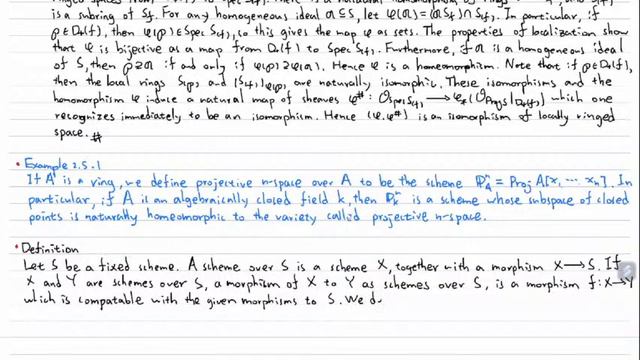 is a subring of S_f. For any homogeneous ideal 𝔞⊆S, let φ(𝔞)=(𝔞S_f)∩S_(f). In particular, if
𝔭∈D₊(f), then φ(𝔭)∈Spec S_(f), so this gives the map φ as sets. The properties of localization show
that φ is bijective as a map from D₊(f) to Spec S_(f). Furthermore, if 𝔞 is a homogeneous ideal
of S, then 𝔭⊇𝔞 if and only if φ(𝔭)⊇φ(𝔞). Hence φ is a homeomorphism. Note that if 𝔭∈D₊(f),
then the local rings S_(𝔭) and (S_(f))_φ(𝔭) are naturally isomorphic. These isomorphisms and the
homomorphism φ induce a natural map of sheaves φ^#: O_Spec S_(f) → φ_*(O_Proj S|_D₊(f)) which one
recognizes immediately to be an isomorphism. Hence (φ, φ^#) is an isomorphism of locally ringed
space. #
• Example 2.5.1
If A is a ring, we define projective n-space over A to be the scheme ℙⁿ_A = Proj A[x, ⋯ x_n]. In
particular, if A is an algebraically closed field k, then ℙⁿ_k is a scheme whose subspace of closed
points is naturally homeomorphic to the variety called projective n-space.
• Definition
Let S be a fixed scheme. A scheme over S is a scheme X, together with a morphism X → S. If
X and Y are schemes over S, a morphism of X to Y as schemes over S, is a morphism f: X → Y
which is compatable with the given morphisms to S. We d